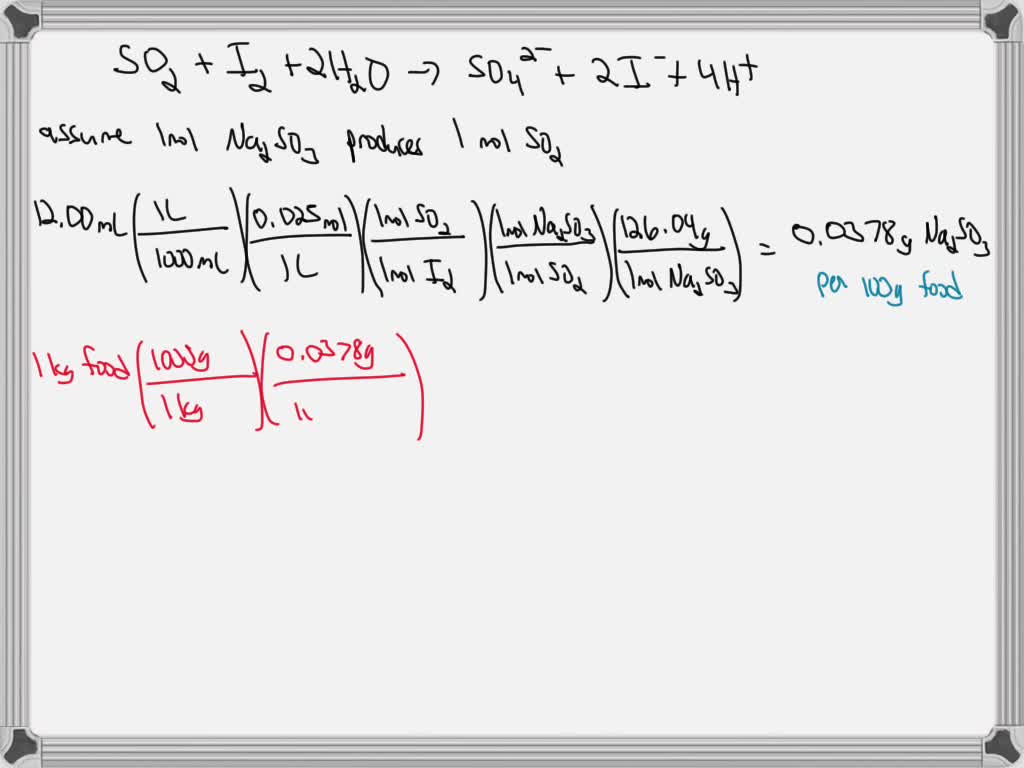 SO₂ + I₂ + 2H₂O → SO₄²⁻ + 2I⁻ + 4H⁺
assume 1mol Na₂SO₃ produces 1 mol SO₂
12.00mL (1L / 1000mL)(0.025mol / 1L)(1mol SO₂ / 1mol I₂)(1mol Na₂SO₃ / 1mol SO₂)(126.04g / 1mol Na₂SO₃) = 0.0378g Na₂SO₃
per 100g food
1kg food (1000g / 1kg)(0.0378g / 1